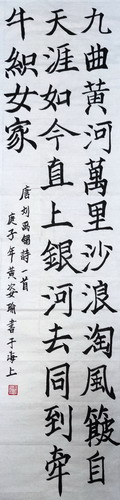 九曲黃河萬里沙浪淘風簸自
天涯如今直上銀河去同到牽
牛織女家
唐刘禹锡詩一首
庚子年黄姿瑜書于海上